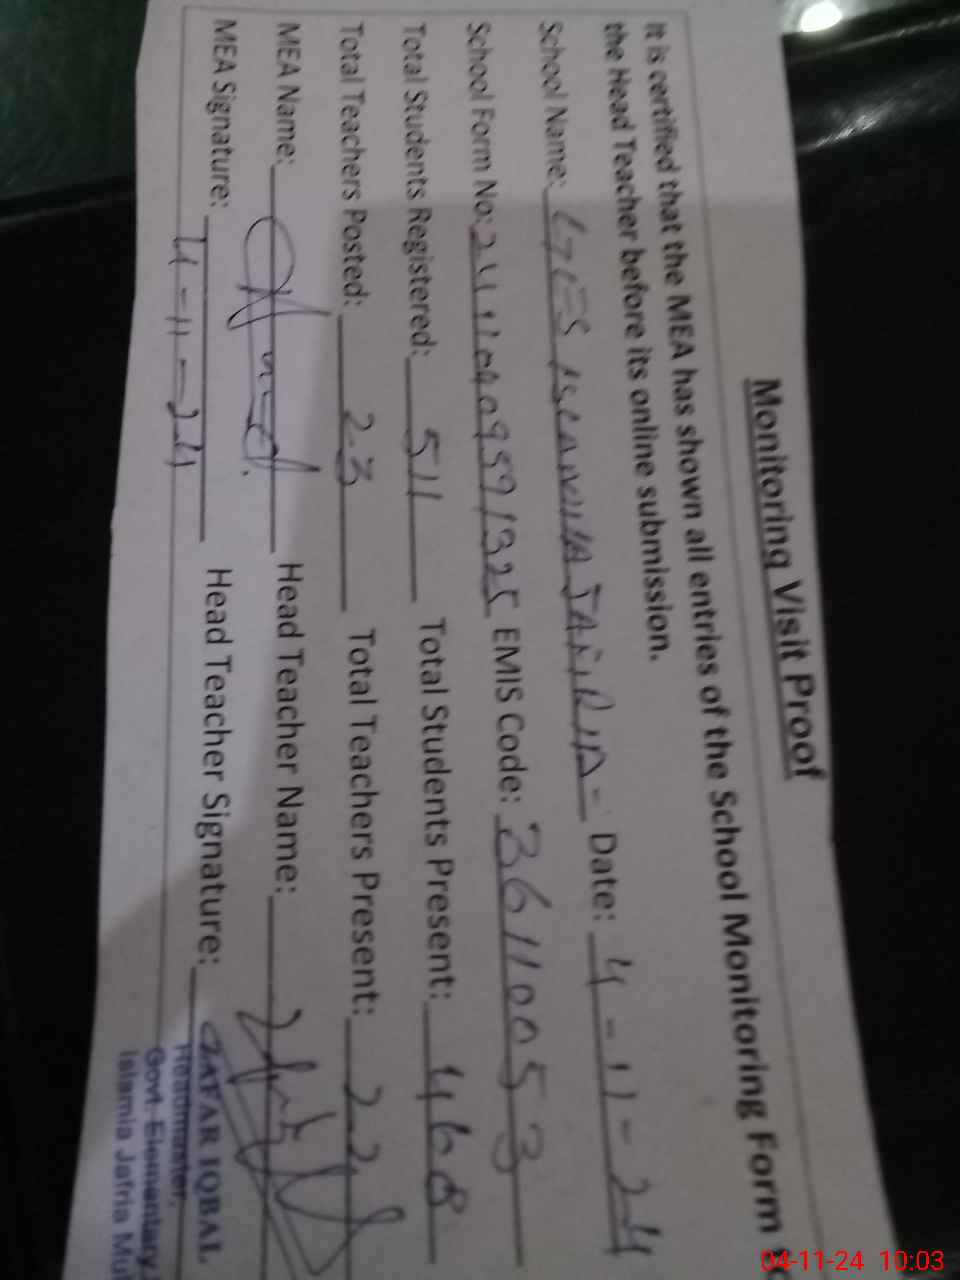 Monitoring Visit Proof
It is certified that the MEA has shown all entries of the School Monitoring Form
the Head Teacher before its online submission.
School Name: GES ISLAMIA JAFRIA - Date: 4-11-24
School Form No: EMIS Code: 36110053
Total Students Registered: 511 Total Students Present: 468
Total Teachers Posted: 23 Total Teachers Present: 22
MEA Name: Head Teacher Name:
MEA Signature: Head Teacher Signature:
4-11-24
ZAFAR IQBAL
Headmaster,
Govt. Elementary
Islamia Jafria Mul
04-11-24 10:03